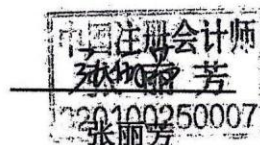 中国注册会计师
张丽芳
320100250007
张丽芳